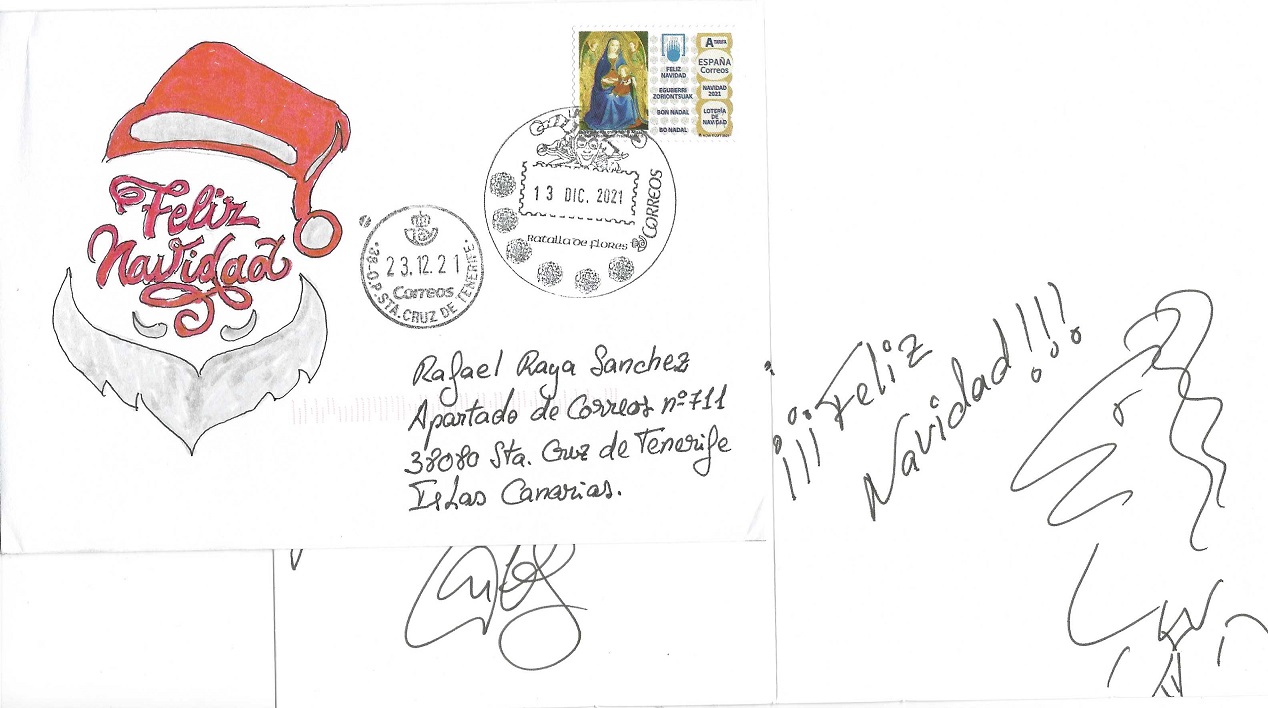 Feliz
Navidad
FELIZ
NAVIDAD
EGUBERRI
ZORIONTSUAK
BON NADAL
BO NADAL
A TARIFA
ESPAÑA
Correos
NAVIDAD
2021
LOTERÍA
DE
NAVIDAD
13 DIC. 2021
CORREOS
Batalla de flores
23.12.21
Correos
38-O.P. STA. CRUZ DE TENERIFE
Rafael Raya Sanchez
Apartado de Correos nº 711
38080 Sta. Cruz de Tenerife
Islas Canarias.
¡¡¡Feliz
Navidad!!!